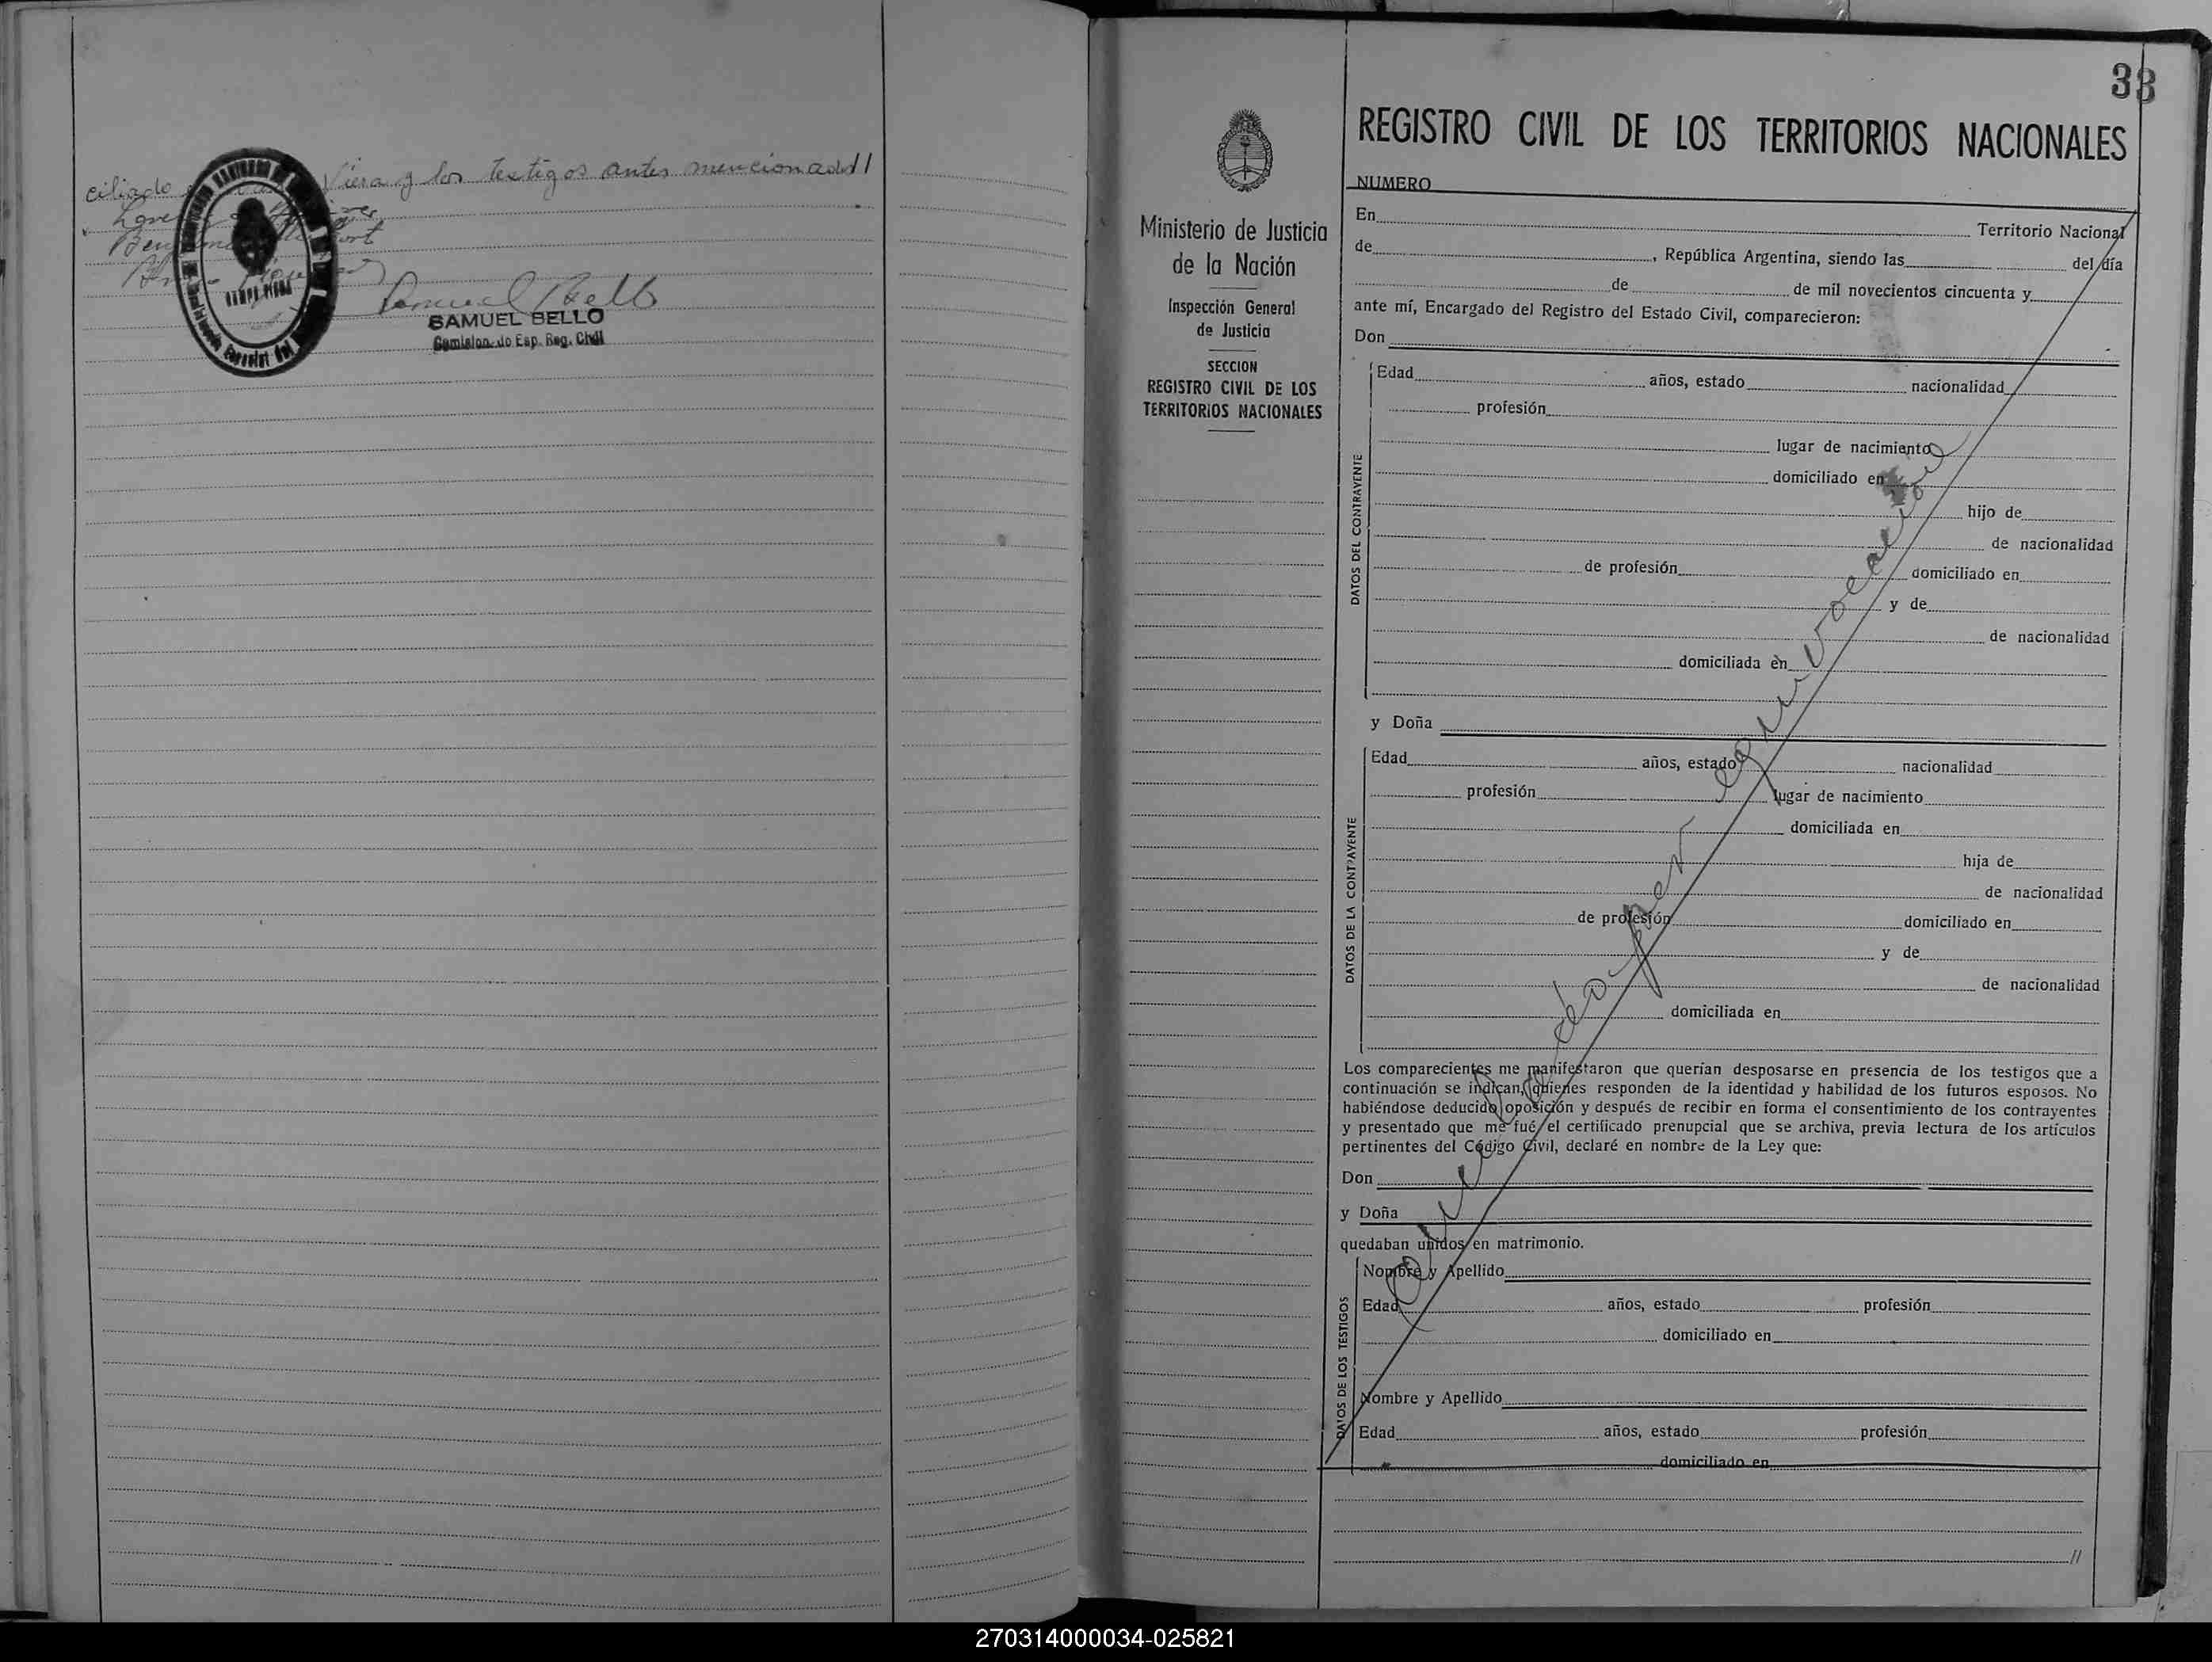 ciliado Viera y los testigos antes mencionados//
Samuel Bello
SAMUEL BELLO
Reg. Civil
33
REGISTRO CIVIL DE LOS TERRITORIOS NACIONALES
NUMERO
Ministerio de Justicia
de la Nación
Inspección General
de Justicia
SECCION
REGISTRO CIVIL DE LOS
TERRITORIOS NACIONALES
En Territorio Nacional
de , República Argentina, siendo las del día
de de mil novecientos cincuenta y
ante mí, Encargado del Registro del Estado Civil, comparecieron:
Don
DATOS DEL CONTRAYENTE
Edad años, estado nacionalidad
profesión
lugar de nacimiento
domiciliado en
hijo de
de nacionalidad
de profesión domiciliado en
y de
de nacionalidad
domiciliada en
y Doña
DATOS DE LA CONTRAYENTE
Edad años, estado nacionalidad
profesión lugar de nacimiento
domiciliada en
hija de
de nacionalidad
de profesión domiciliado en
y de
de nacionalidad
domiciliada en
Los comparecientes me manifestaron que querían desposarse en presencia de los testigos que a
continuación se indican, quienes responden de la identidad y habilidad de los futuros esposos. No
habiéndose deducido oposición y después de recibir en forma el consentimiento de los contrayentes
y presentado que me fué el certificado prenupcial que se archiva, previa lectura de los artículos
pertinentes del Código Civil, declaré en nombre de la Ley que:
Don
y Doña
quedaban unidos en matrimonio.
DATOS DE LOS TESTIGOS
Nombre y Apellido
Edad años, estado profesión
domiciliado en
Nombre y Apellido
Edad años, estado profesión
domiciliado en
//
por equivocación
270314000034-025821